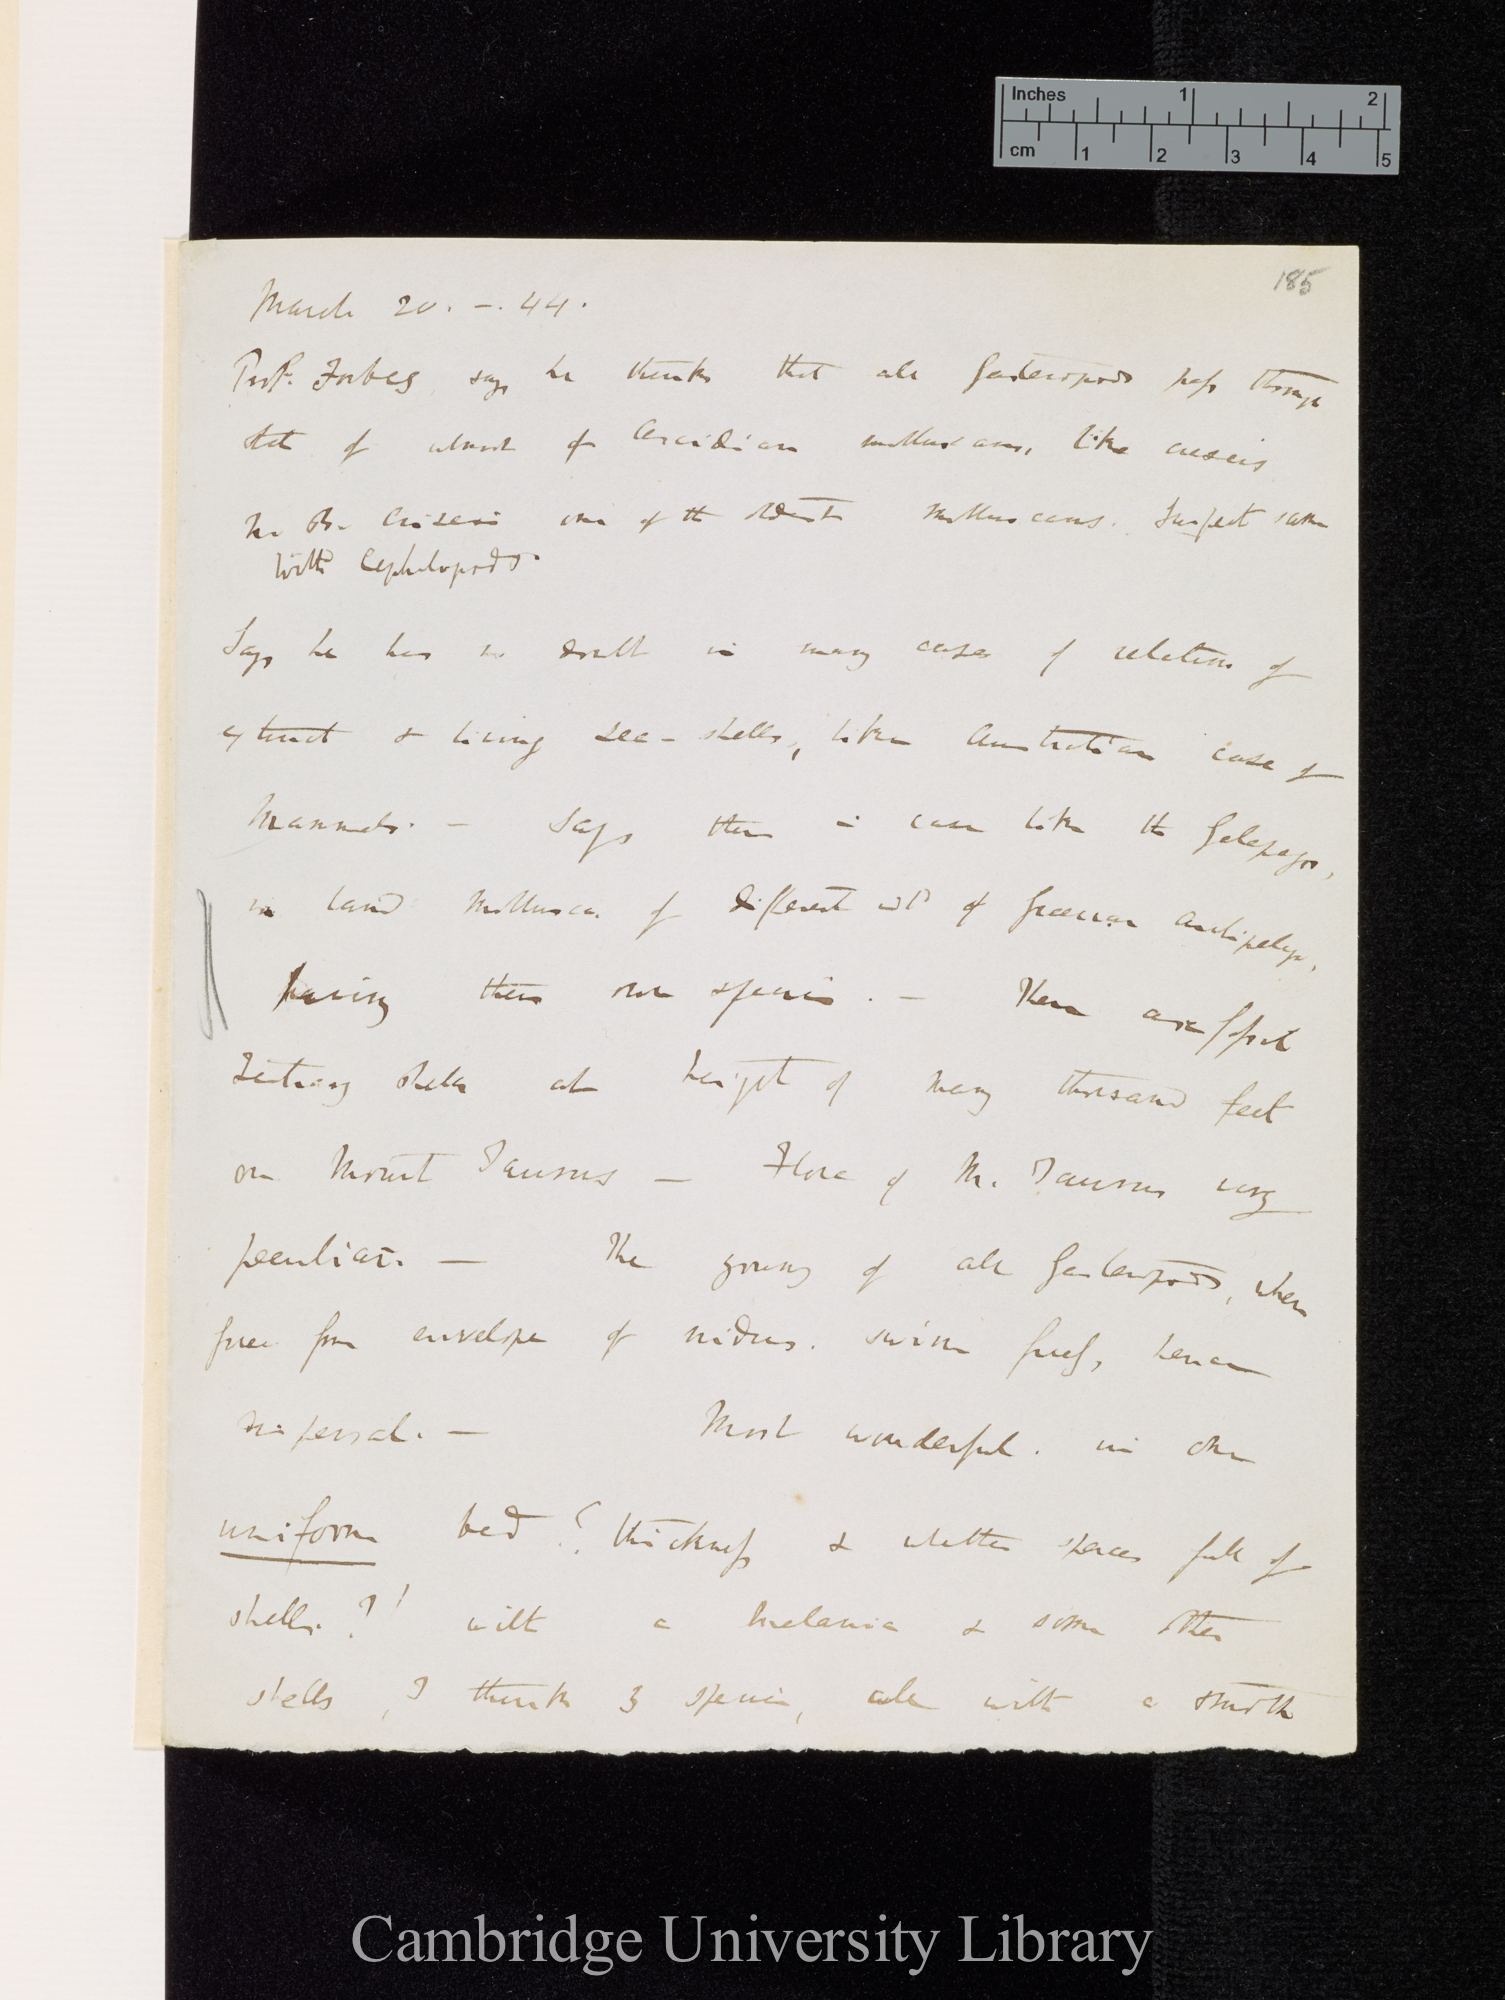 Inches 1 2
cm 1 2 3 4 5
185
March 20. —. 44.
Prof. Forbes says he thinks that all Gasteropods pass through
state of almost of Ascidian molluscans, like creseis
one of the oldest molluscans. Suspect same
with Cephalopods.
Says he has no doubt in many cases of relation of
extinct & living sea-shells, like Australian case of
Mammals. — Says there is case like the Galapagos,
in land Mollusca. of different isld of Grecian Archipelago,
having their own species. — There are fossil
Tertiary shells at height of many thousand feet
on Mount Taurus — Flora of M. Taurus very
peculiar. — The young of all Gasteropods, when
free from envelope of nidus. swim freely, hence
dispersal. — Most wonderful. in one
uniform bed (? thickness & whether spaces full of
shells.?! with a Melania & some other
shells, I think 3 species, all with a smooth
Cambridge University Library